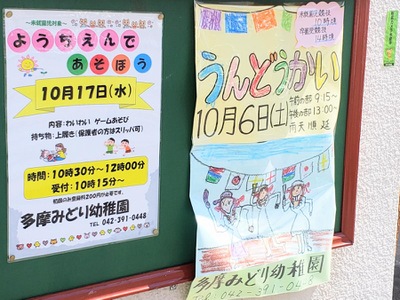 ～未就園児対象～
ようちえんで
あそぼう
10月17日(水)
内容：わいわい ゲームあそび
持ち物：上履き(保護者の方はスリッパ可)
時間：10時30分～12時00分
受付：10時15分～
TEL 042-391-0448
多摩みどり幼稚園
未就園児競技
10時頃
卒園児競技
14時頃
うんどうかい
10月6日(土)
午前の部 9:15～
午後の部 13:00～
雨天順延
多摩みどり幼稚園
TEL 042-391-0448